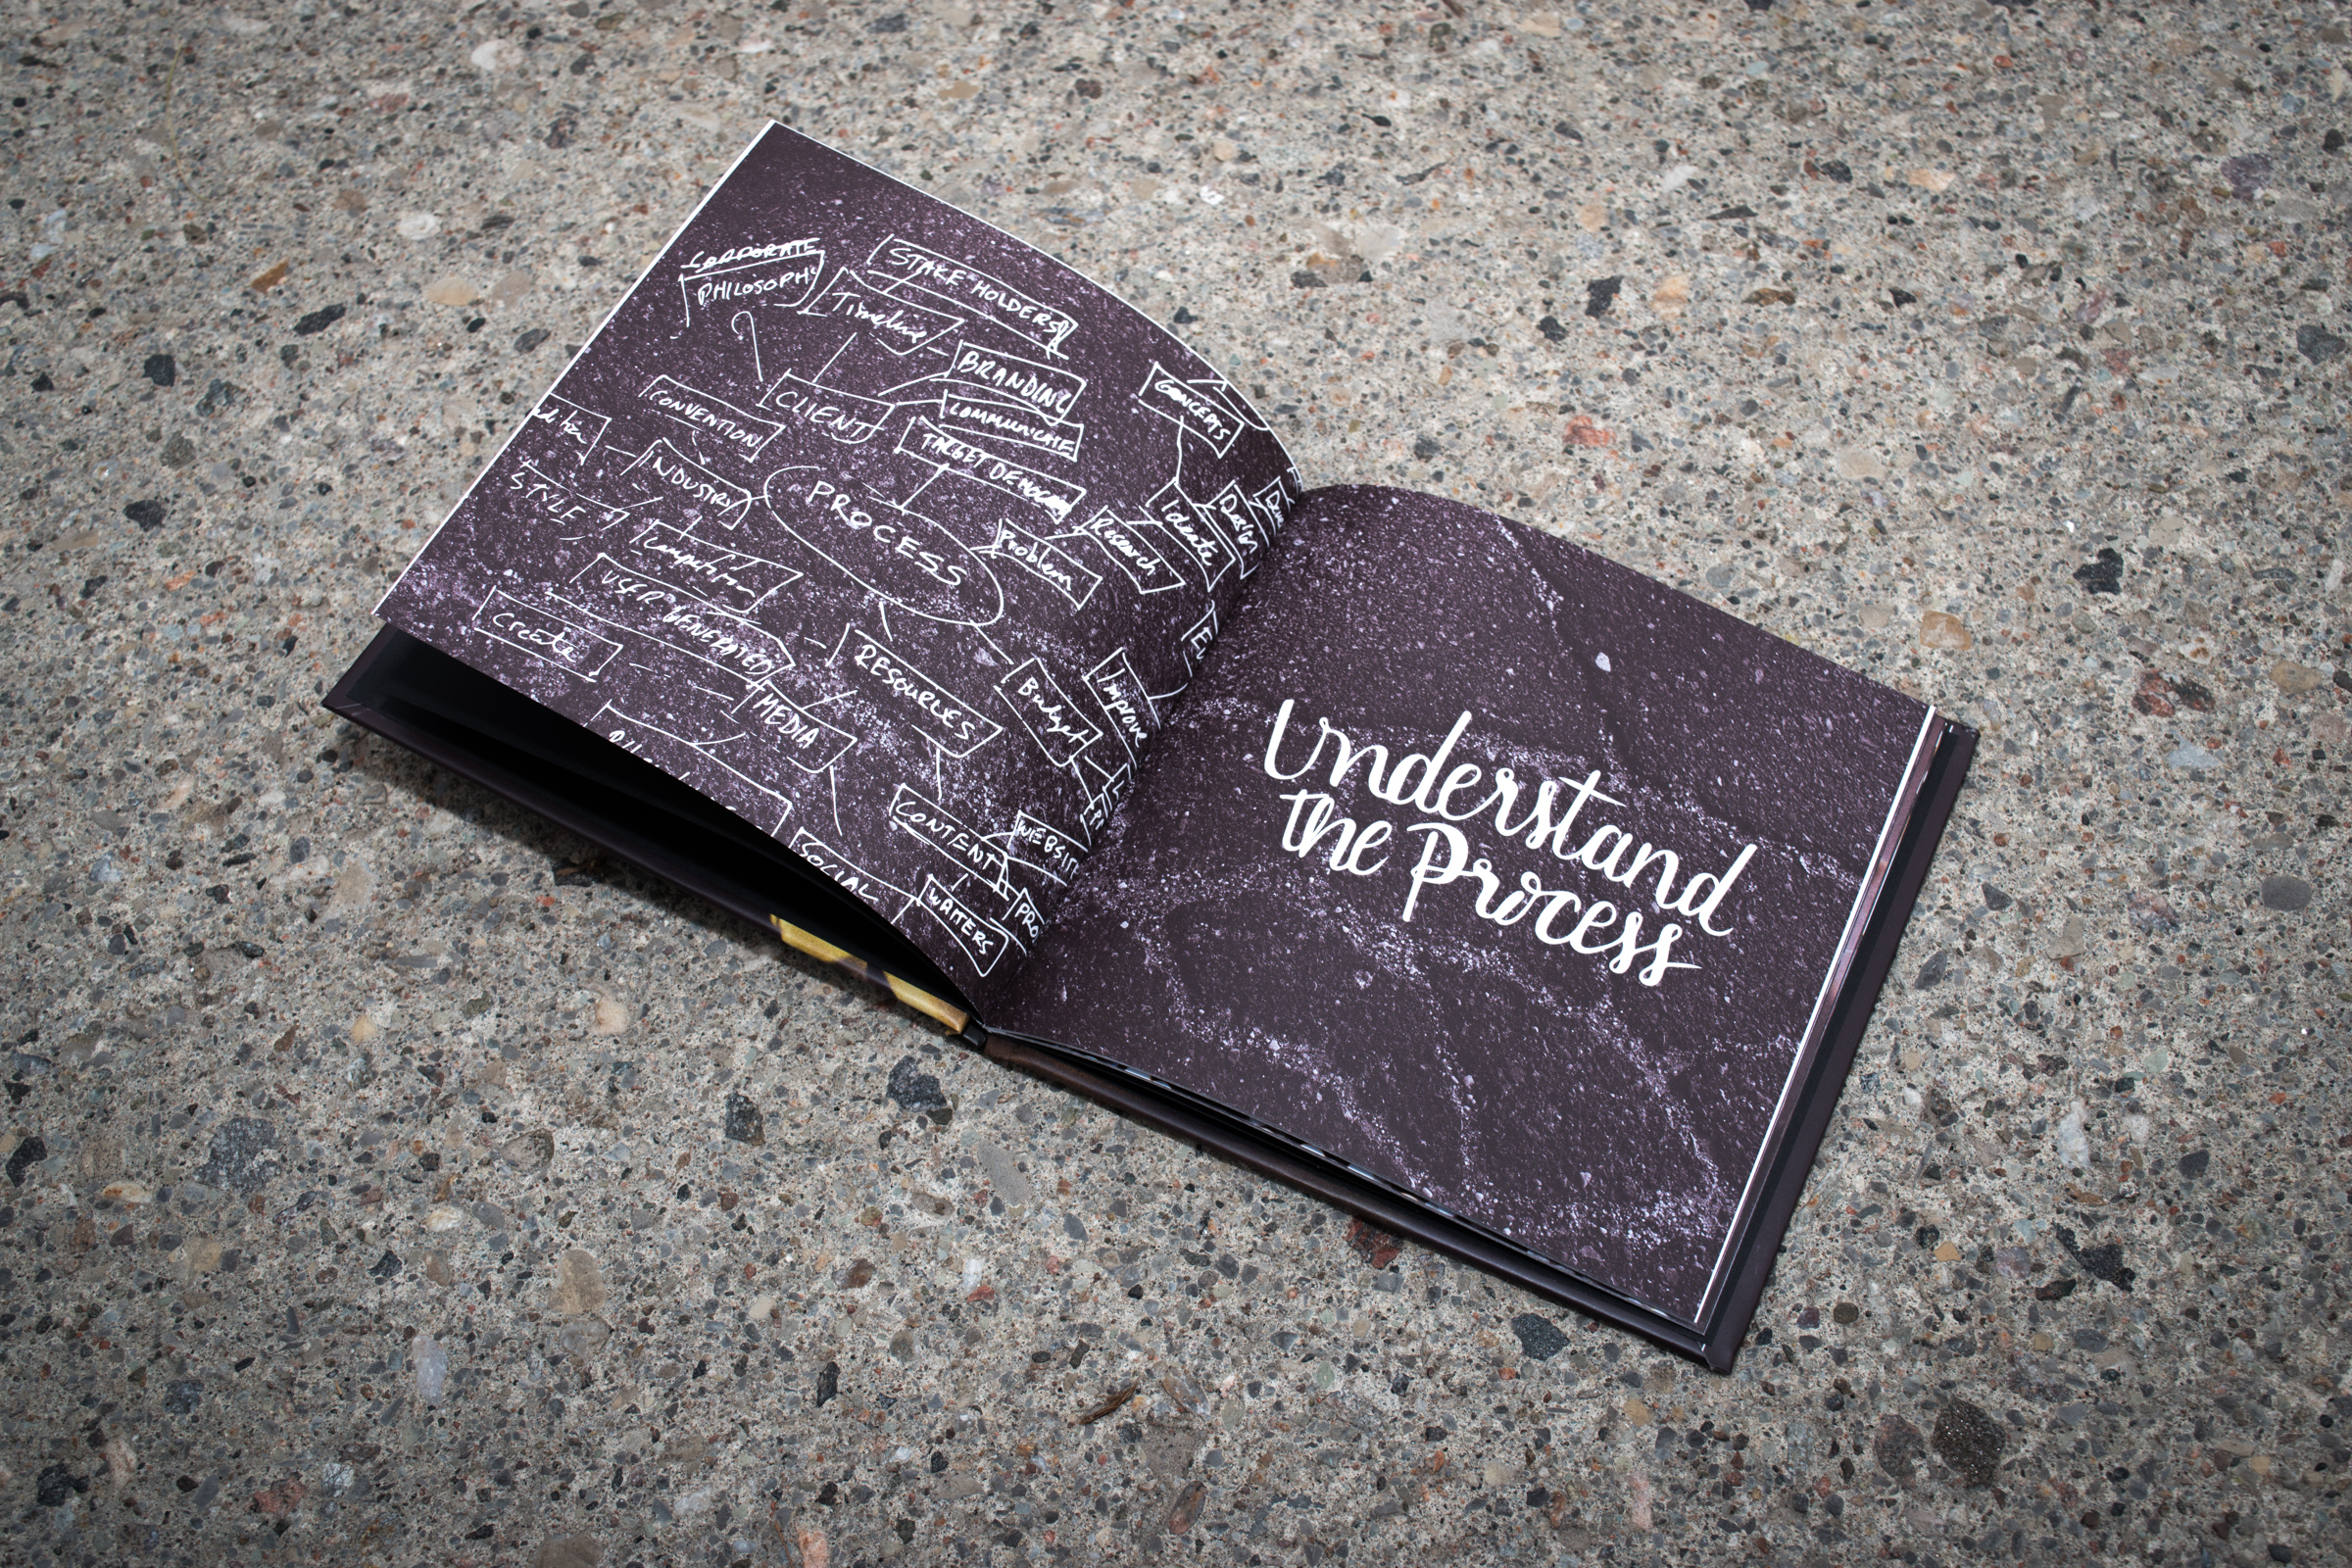 CORPORATE
PHILOSOPHY
STAKE HOLDERS
Timeline
BRANDING
CONCEPTS
CLIENT
COMMUNICATE
CONVENTION
TARGET DEMOGRA
INDUSTRY
PROCESS
Research
Ideate
Design
STYLE
Problem
Competition
USER GENERATED
Create
RESOURCES
Budget
Improve
MEDIA
CONTENT
WEBSIT
SOCIAL
WRITERS
PRO
Understand
the Process